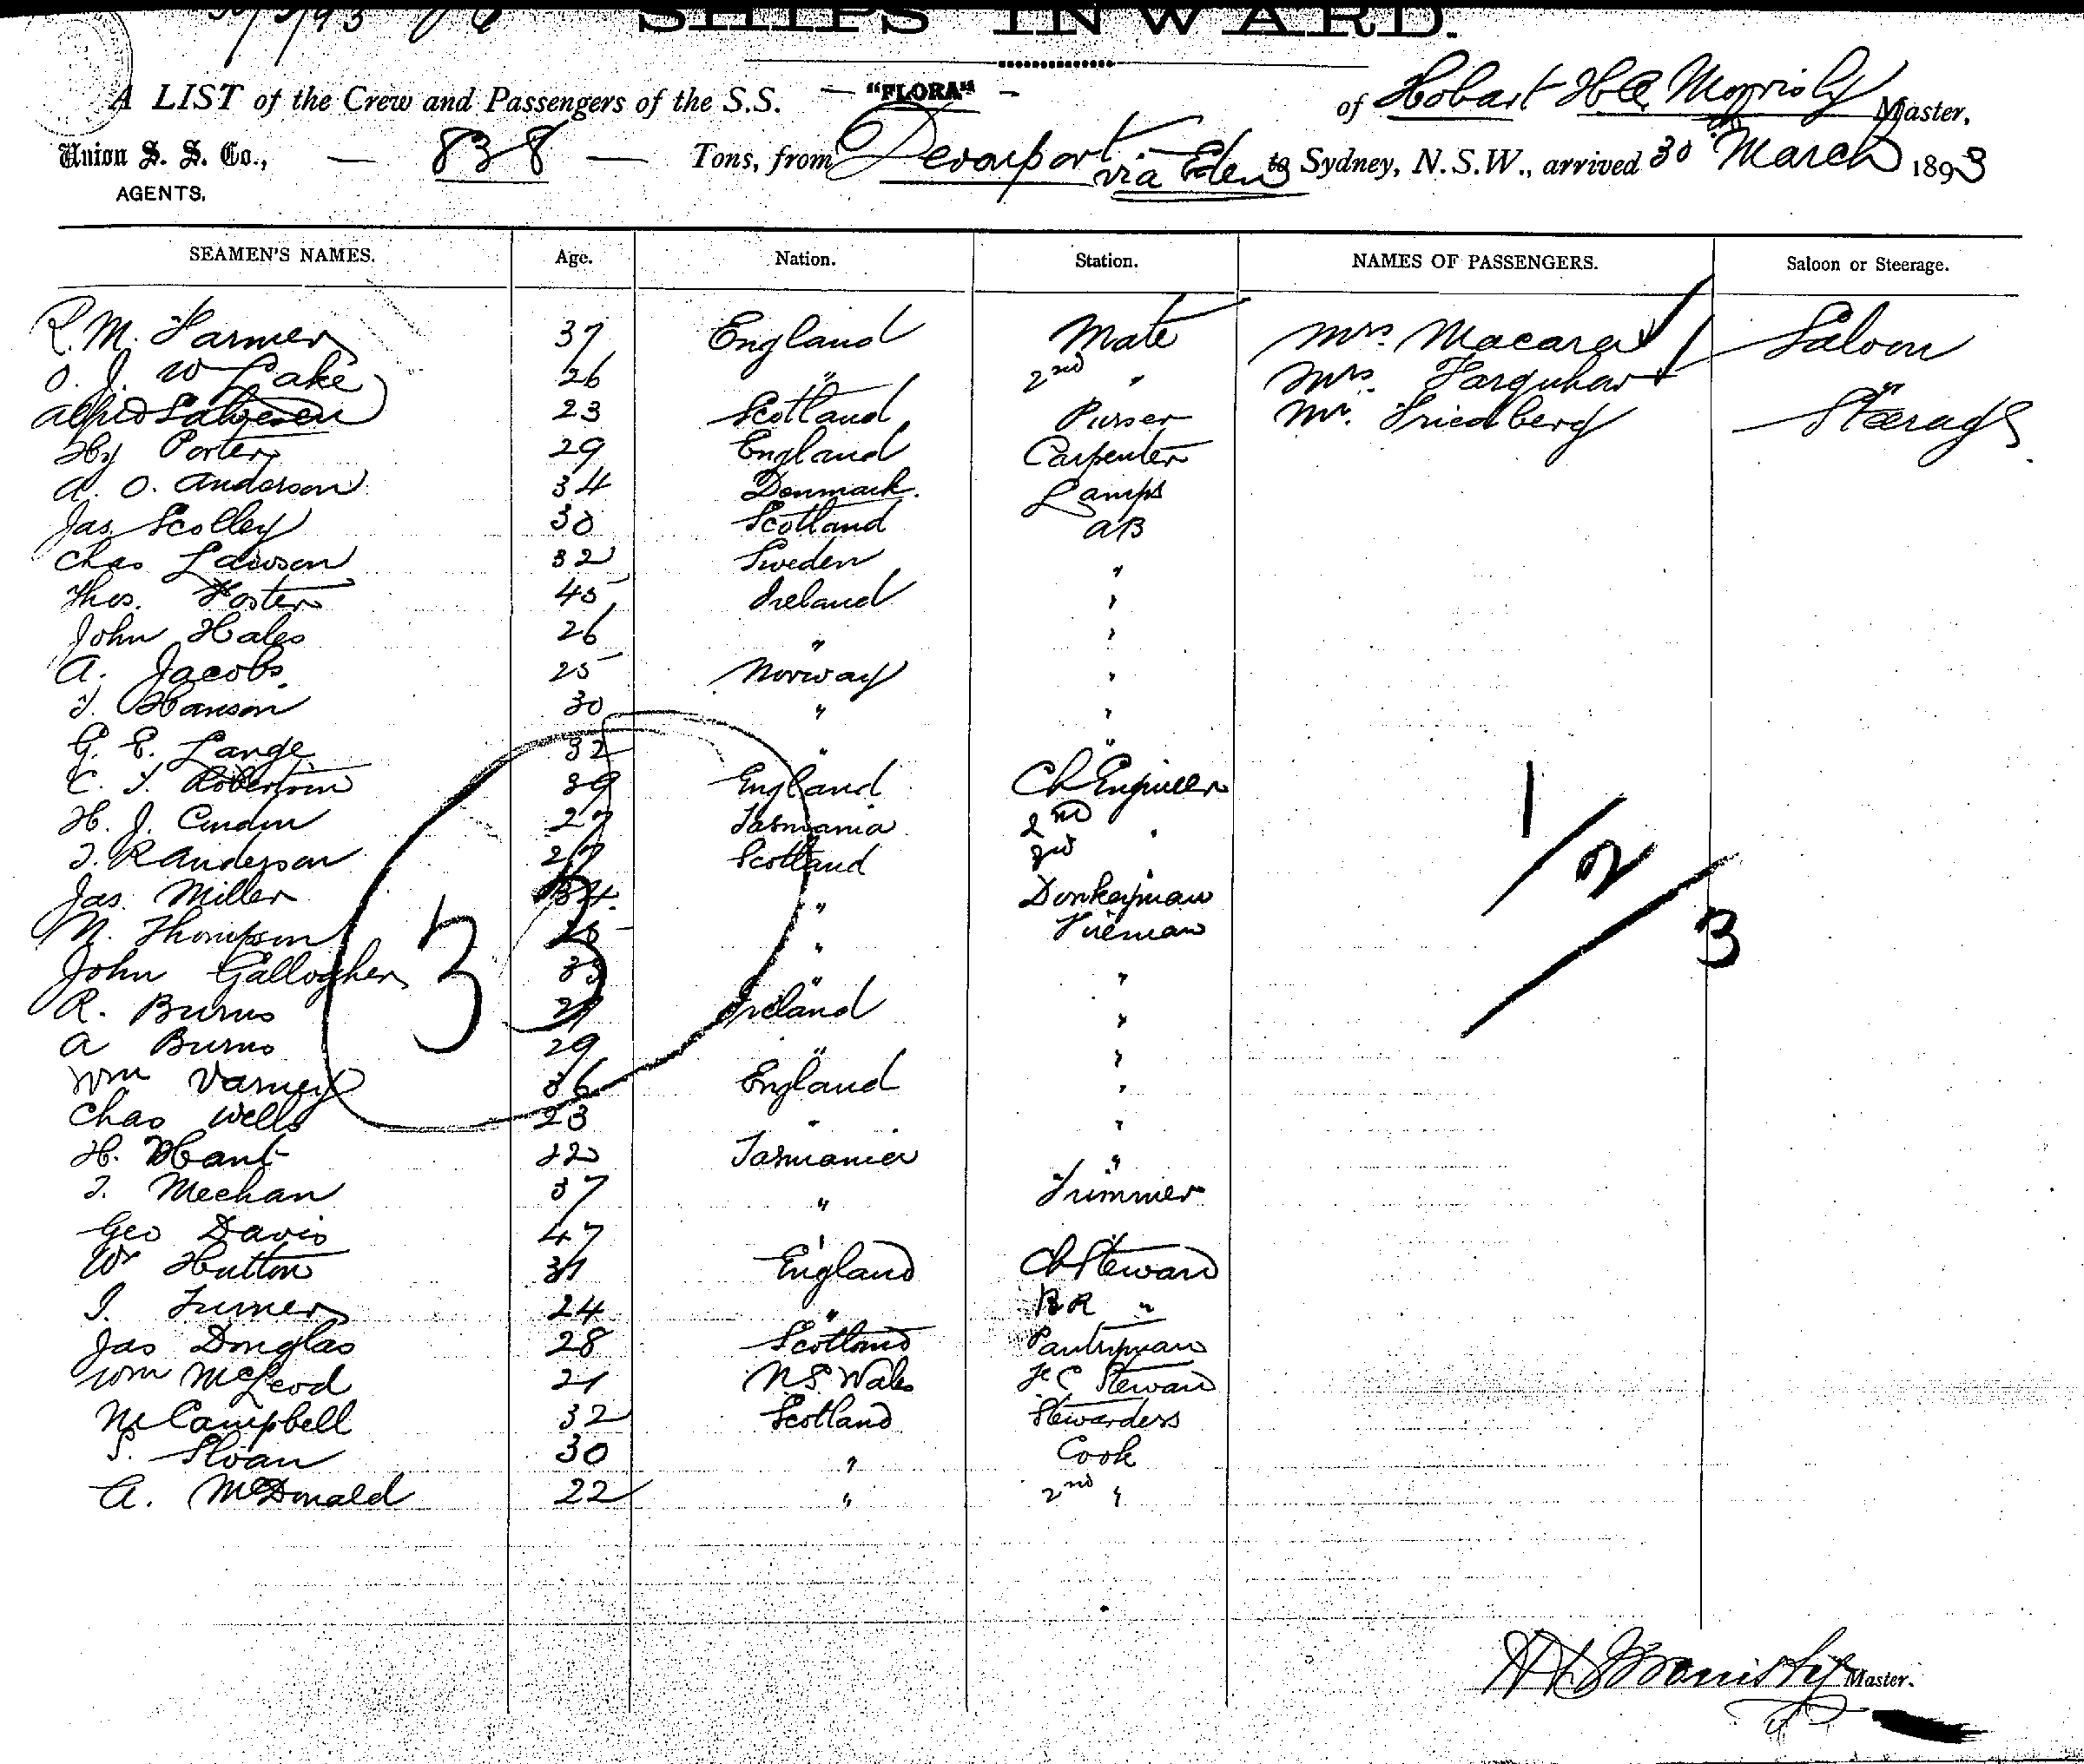 30/3/93
SHIPS INWARD.
A LIST of the Crew and Passengers of the S.S. — "FLORA" — of Hobart Master,
Union S. S. Co., — 838 — Tons, from Devonport via Eden to Sydney, N.S.W., arrived 30 March 1893
AGENTS.
SEAMEN'S NAMES. Age. Nation. Station. NAMES OF PASSENGERS. Saloon or Steerage.
R. M. Farmer 37 England Mate Mrs. Macara Saloon
O. J. W Lake 26 " 2nd " Mrs. Farquhar "
Alfred Salvesen 23 Scotland Purser Mr. Friedberg Steerage
Hy Porter 29 England Carpenter
A. O. Anderson 34 Denmark. Lamps
Jas Scolley 30 Scotland AB
Chas Lawson 32 Sweden "
Thos. Foster 45 Ireland "
John Hales 26 " "
A. Jacobs. 25 Norway "
T. Hanson 30 " "
G. E. Lange 32 " "
C. T. Robertson 39 England Ch Engineer
H. J. 27 Tasmania 2nd "
T. R Anderson 27 Scotland 3rd "
Jas. Miller 34 " Donkeyman
M. Thompson 25 " Fireman
John Gallogher 33 " "
R. Burns 29 Ireland "
A Burns 29 " "
Wm Varney 36 England "
Chas Wells 23 " "
H. Hant 22 Tasmania "
T. Meehan 37 " Trimmer
Geo Davis 47 "
Wm Hutton 31 England Ch Steward
J. Turner 24 " B R "
Jas Douglas 28 Scotland Pantryman
Wm McLeod 21 N S Wales F C Steward
M Campbell 32 Scotland Stewardess
S. Sloan 30 " Cook
A. McDonald 22 " 2nd "
33
1/2/3
Master.